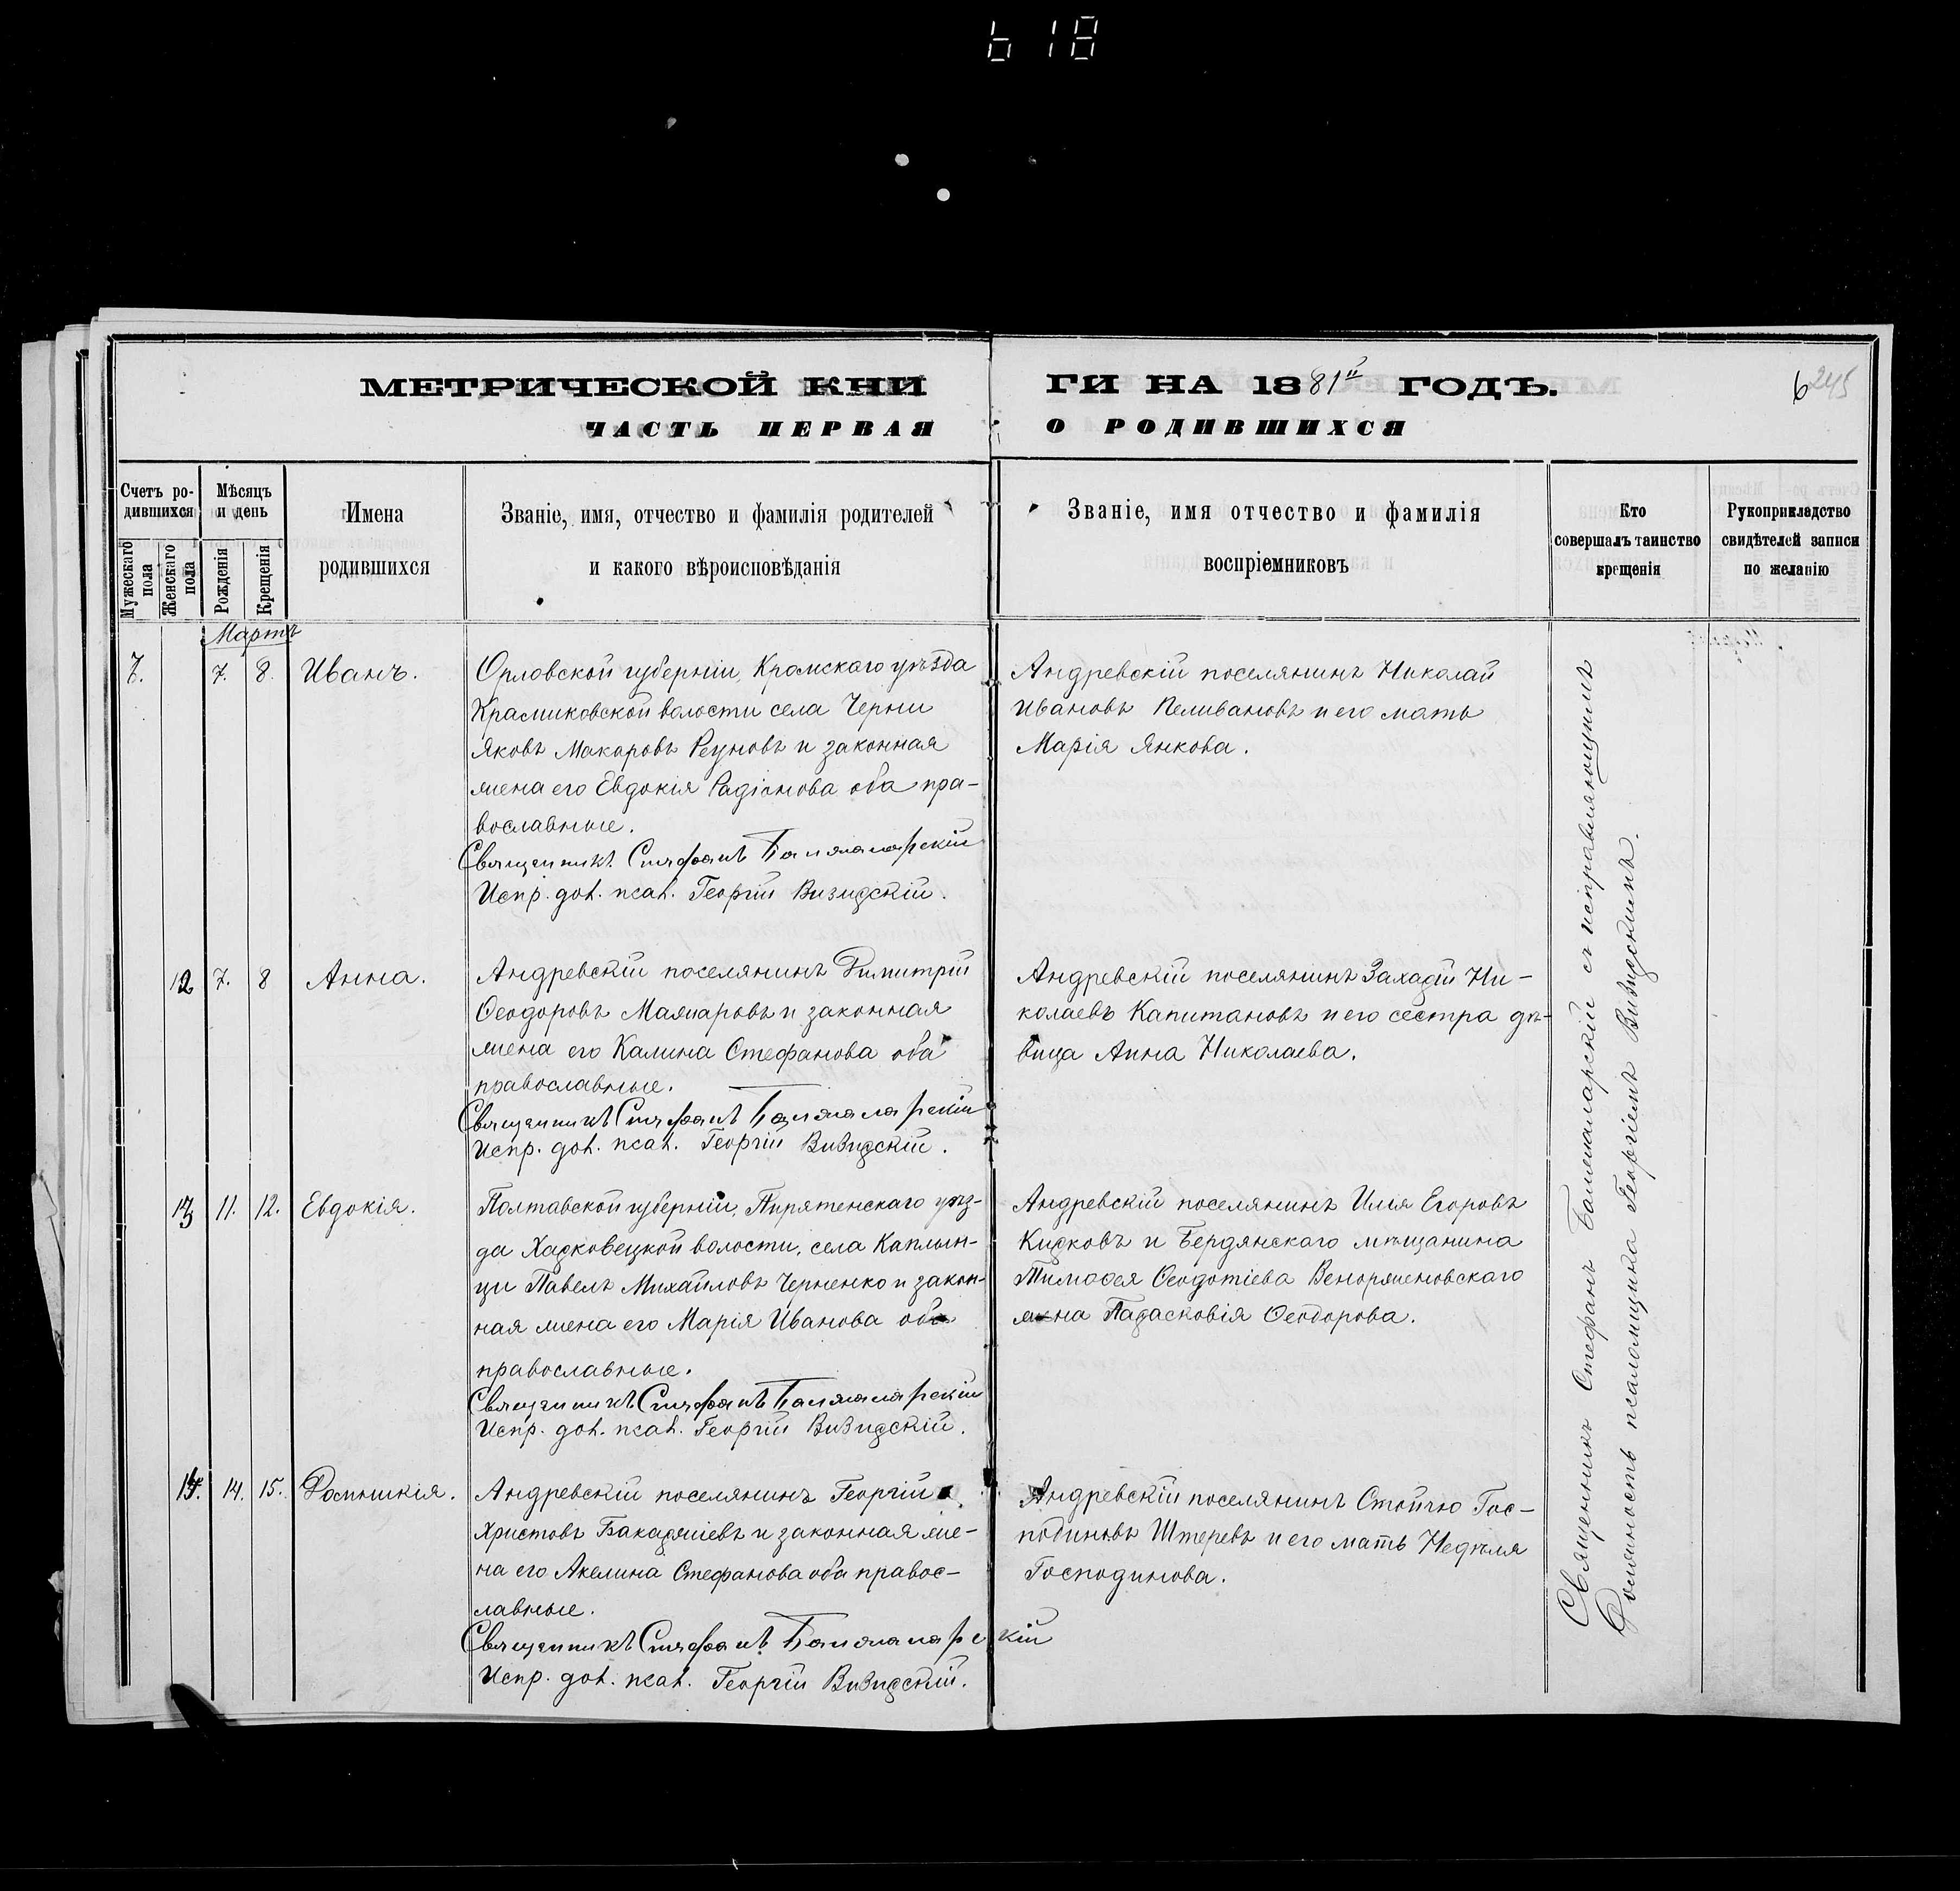 618
МЕТРИЧЕСКОЙ КНИ
ГИ НА 1881й ГОДЪ.
6 245
ЧАСТЬ ПЕРВАЯ
О РОДИВШИХСЯ
Счетъ ро-
дившихся
Мужескаго пола
Женскаго пола
Мѣсяцъ
и день
Рожденія
Крещенія
Имена
родившихся
Званіе, имя, отчество и фамилія родителей
и какого вѣроисповѣданія
Званіе, имя отчество и фамилія
воспріемниковъ
Кто
совершалъ таинство
крещенія
Рукоприкладство
свидѣтелей записи
по желанію
Мартъ
7. 7. 8. Иванъ.
Орловской губерніи, Кромскаго уѣзда
волости села Черни
Яковъ Макаровъ Реуновъ и законная
жена его Евдокія Радіонова оба пра-
вославные.
Священникъ Стефанъ Баламаларскій
Испр. дол. псал. Георгій Визирскій.
Андревскій поселянинъ Николай
Ивановъ Пеливановъ и его мать
Марія Янкова.
12 7. 8 Анна.
Андревскій поселянинъ Димитрій
Ѳеодоровъ и законная
жена его Калина Стефанова оба
православные.
Священникъ Стефанъ
Испр. дол. псал. Георгій Визирскій.
Андревскій поселянинъ Захарій Ни-
колаевъ Капитановъ и его сестра дѣ-
вица Анна Николаева.
13 11. 12. Евдокія.
Полтавской губерніи, Пирятенскаго уѣз-
да Харковецкой волости, села Каплын-
ци Павелъ Михайловъ Черненко и закон-
ная жена его Марія Иванова оба
православные.
Священникъ Стефанъ
Испр. дол. псал. Георгій Визирскій.
Андревскій поселянинъ Илія Егоровъ
Кирковъ и Бердянскаго мѣщанина
Тимоѳея Ѳеодотіева
жена Парасковія Ѳеодорова.
14. 14. 15. Домникія.
Андревскій поселянинъ Георгій
Христовъ Бакаржіевъ и законная же-
на его Акелина Стефанова оба правос-
лавные.
Священникъ Стефанъ
Испр. дол. псал. Георгій Визирскій.
Андревскій поселянинъ Стойчо Гос-
подиновъ Штеревъ и его мать Недѣля
Господинова.
Священникъ Стефанъ съ исправляющимъ
Должность псаломщика Георгіемъ Визирскимъ.